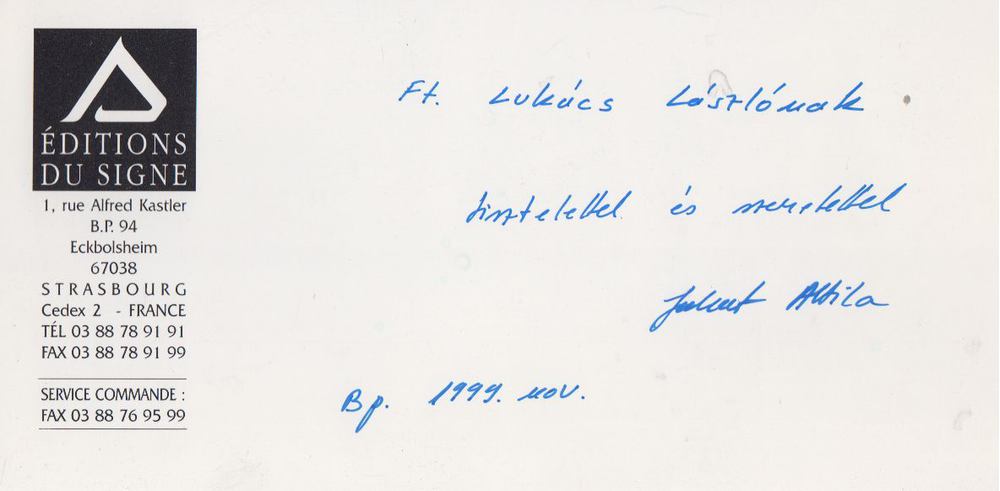 ÉDITIONS
DU SIGNE
1, rue Alfred Kastler
B.P. 94
Eckbolsheim
67038
STRASBOURG
Cedex 2 - FRANCE
TÉL 03 88 78 91 91
FAX 03 88 78 91 99
SERVICE COMMANDE :
FAX 03 88 76 95 99
Ft. Lukács Lászlónak
tisztelettel és szeretettel
Jakab Attila
Bp. 1999. nov.